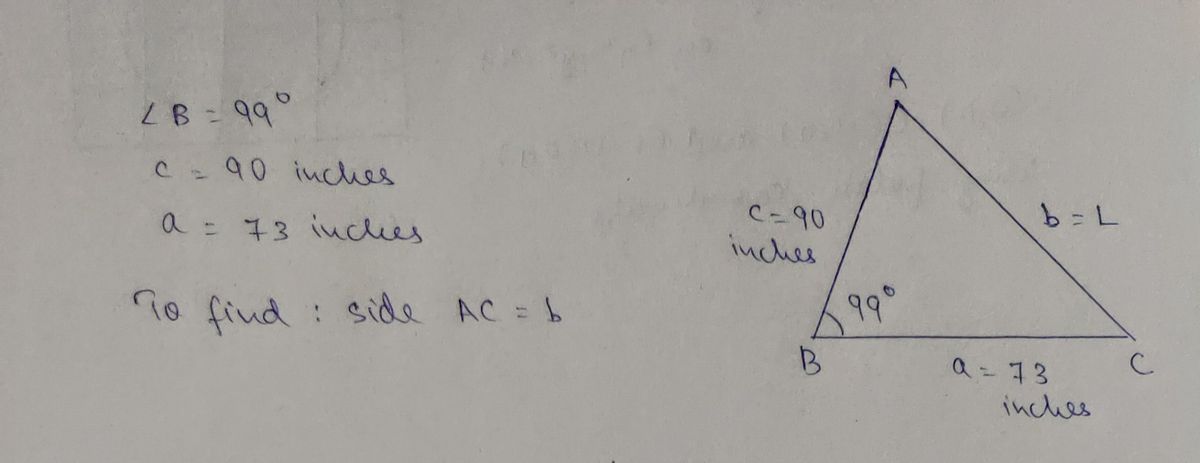 ∠B = 99°
c = 90 inches
a = 73 inches
To find : side AC = b
A
c = 90
inches
b = L
99°
B
a = 73
inches
C